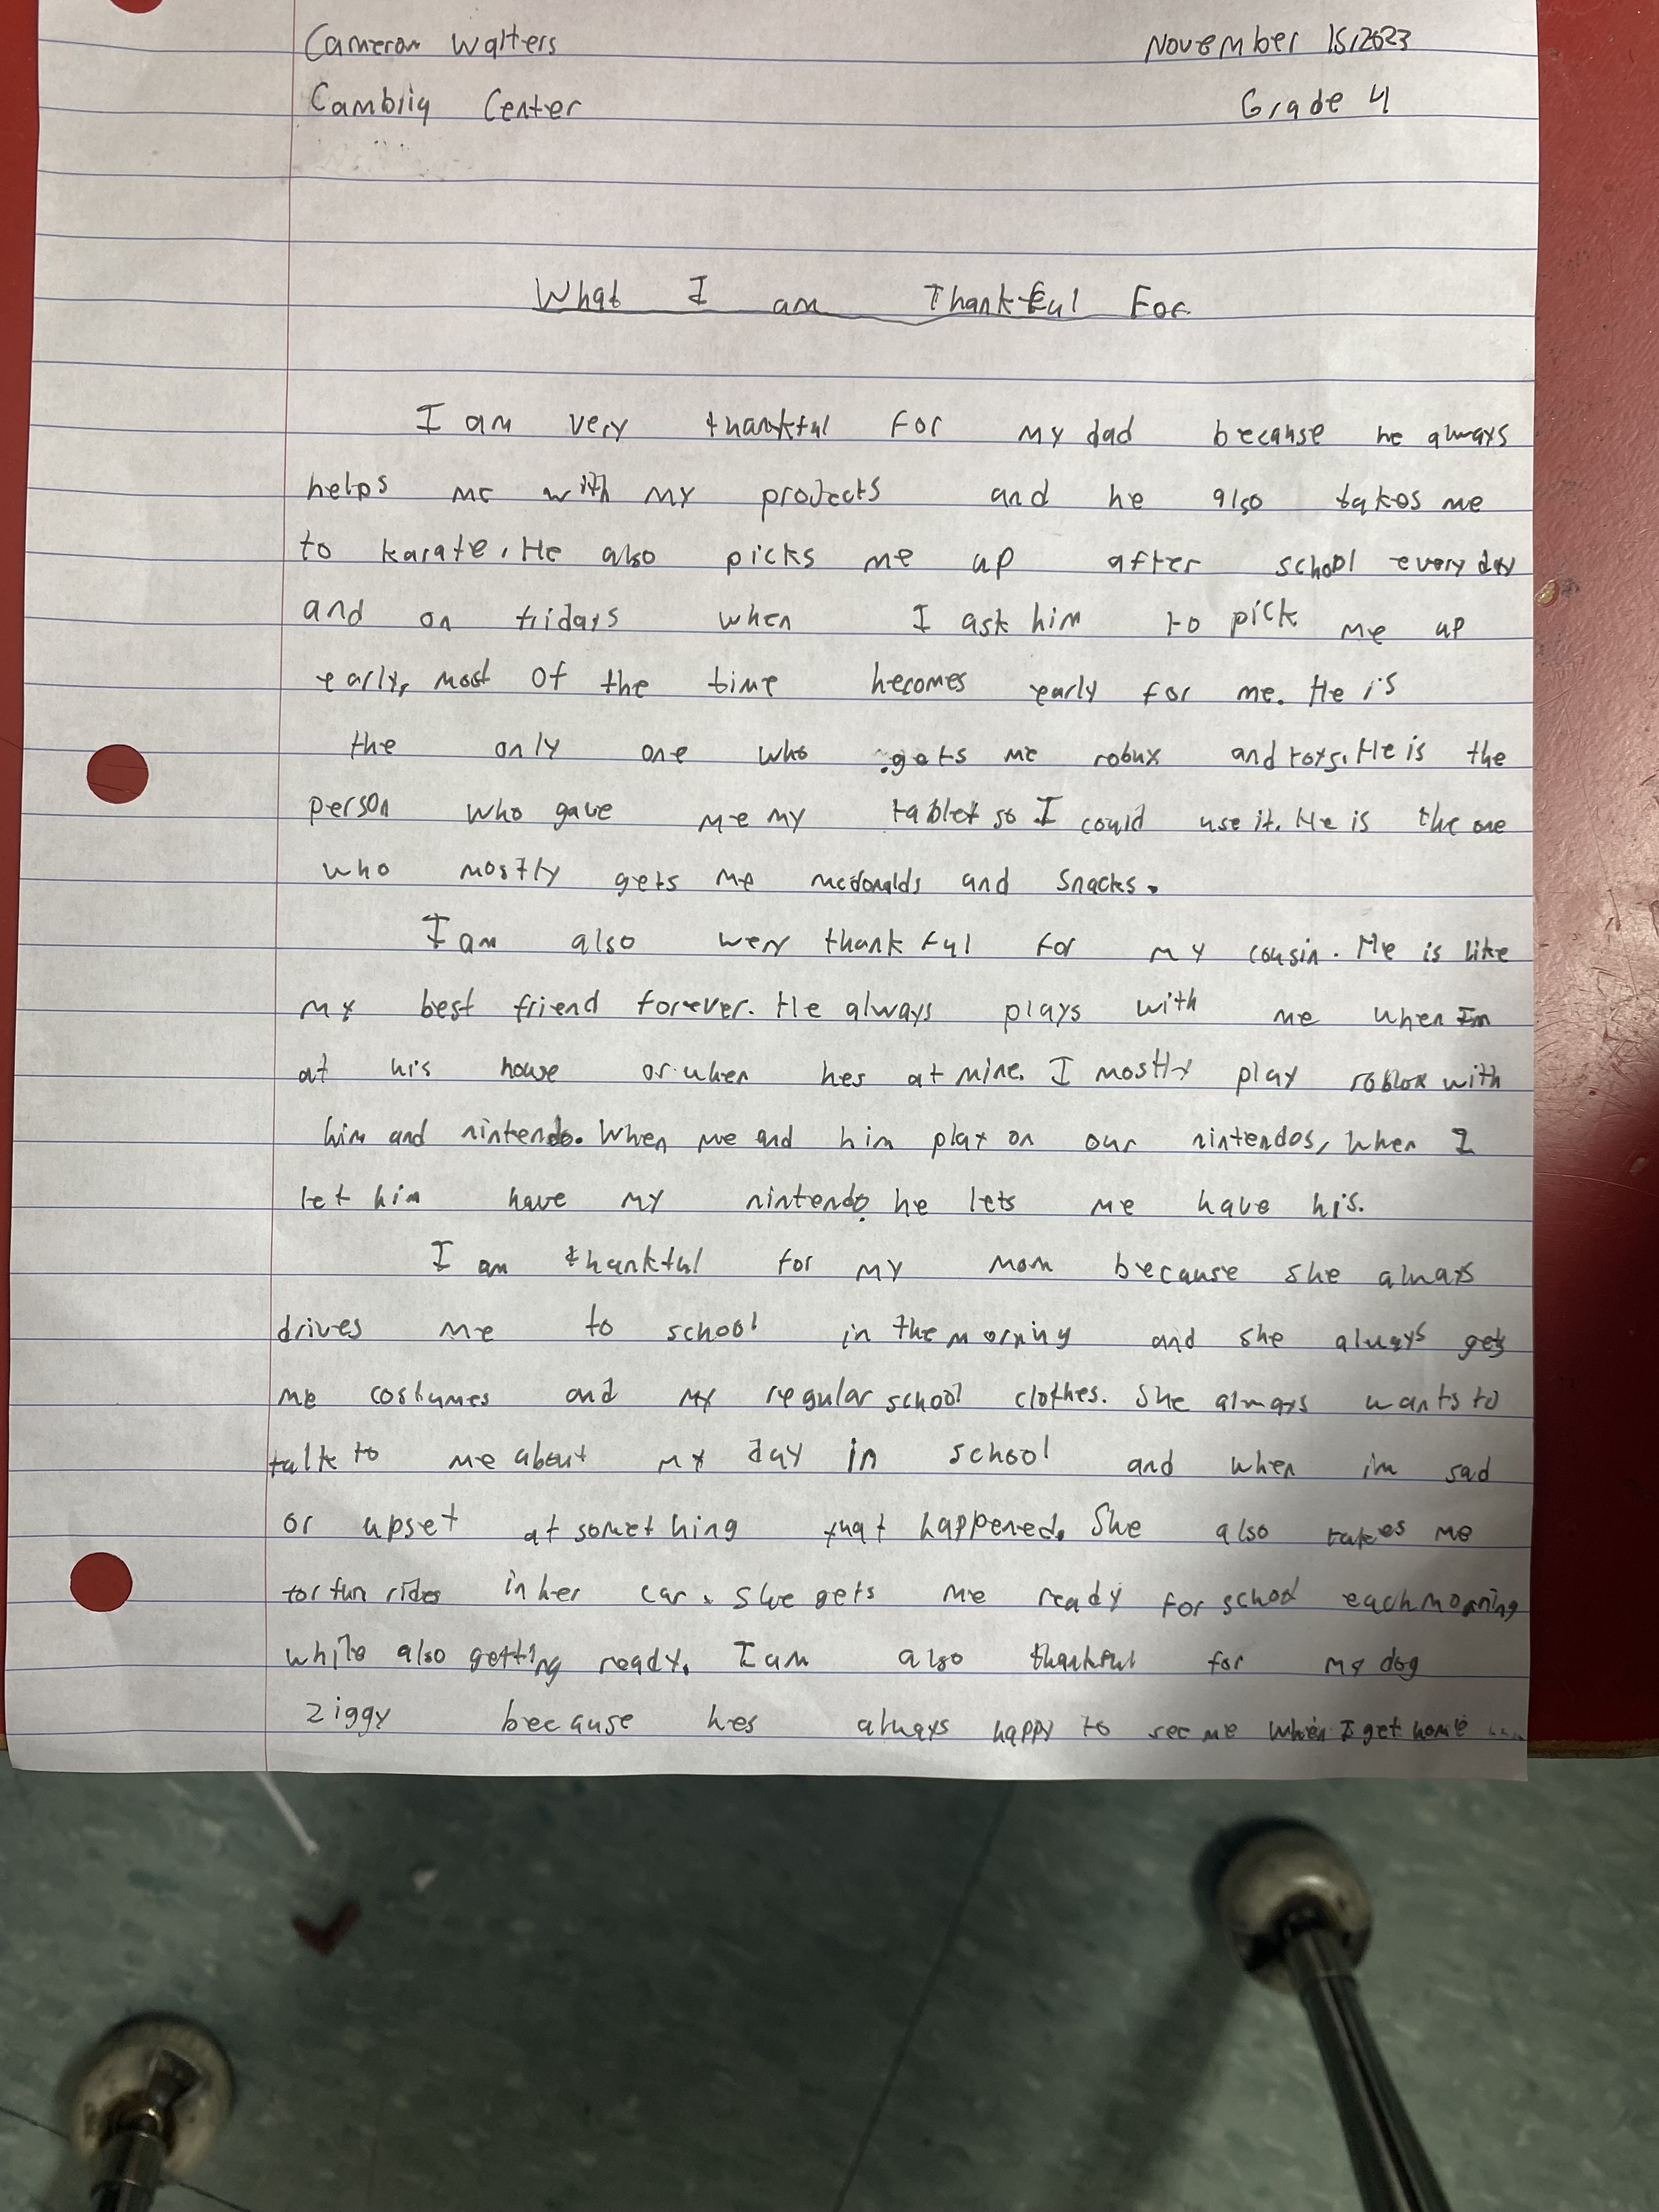 Cameron Walters November 15, 2023
Cambria Center Grade 4
What I am Thankful For
I am very thankful for my dad because he always
helps me with my projects and he also takes me
to karate. He also picks me up after school every day
and on fridays when I ask him to pick me up
early, most of the time hecomes early for me. He is
the only one who gets me robux and toys. He is the
person who gave me my tablet so I could use it. He is the one
who mostly gets me mcdonalds and snacks.
I am also wery thankful for my cousin. He is like
my best friend forever. He always plays with me when Im
at his house or when hes at mine. I mostly play roblox with
him and nintendo. When me and him play on our nintendos, when I
let him have my nintendo, he lets me have his.
I am thankful for my mom because she always
drives me to school in the morning and she always gets
me costumes and my regular school clothes. She always wants to
talk to me about my day in school and when im sad
or upset at something that happened. She also takes me
for fun rides in her car. She gets me ready for school each morning
while also getting ready. I am also thankful for my dog
Ziggy because hes always happy to see me when I get home